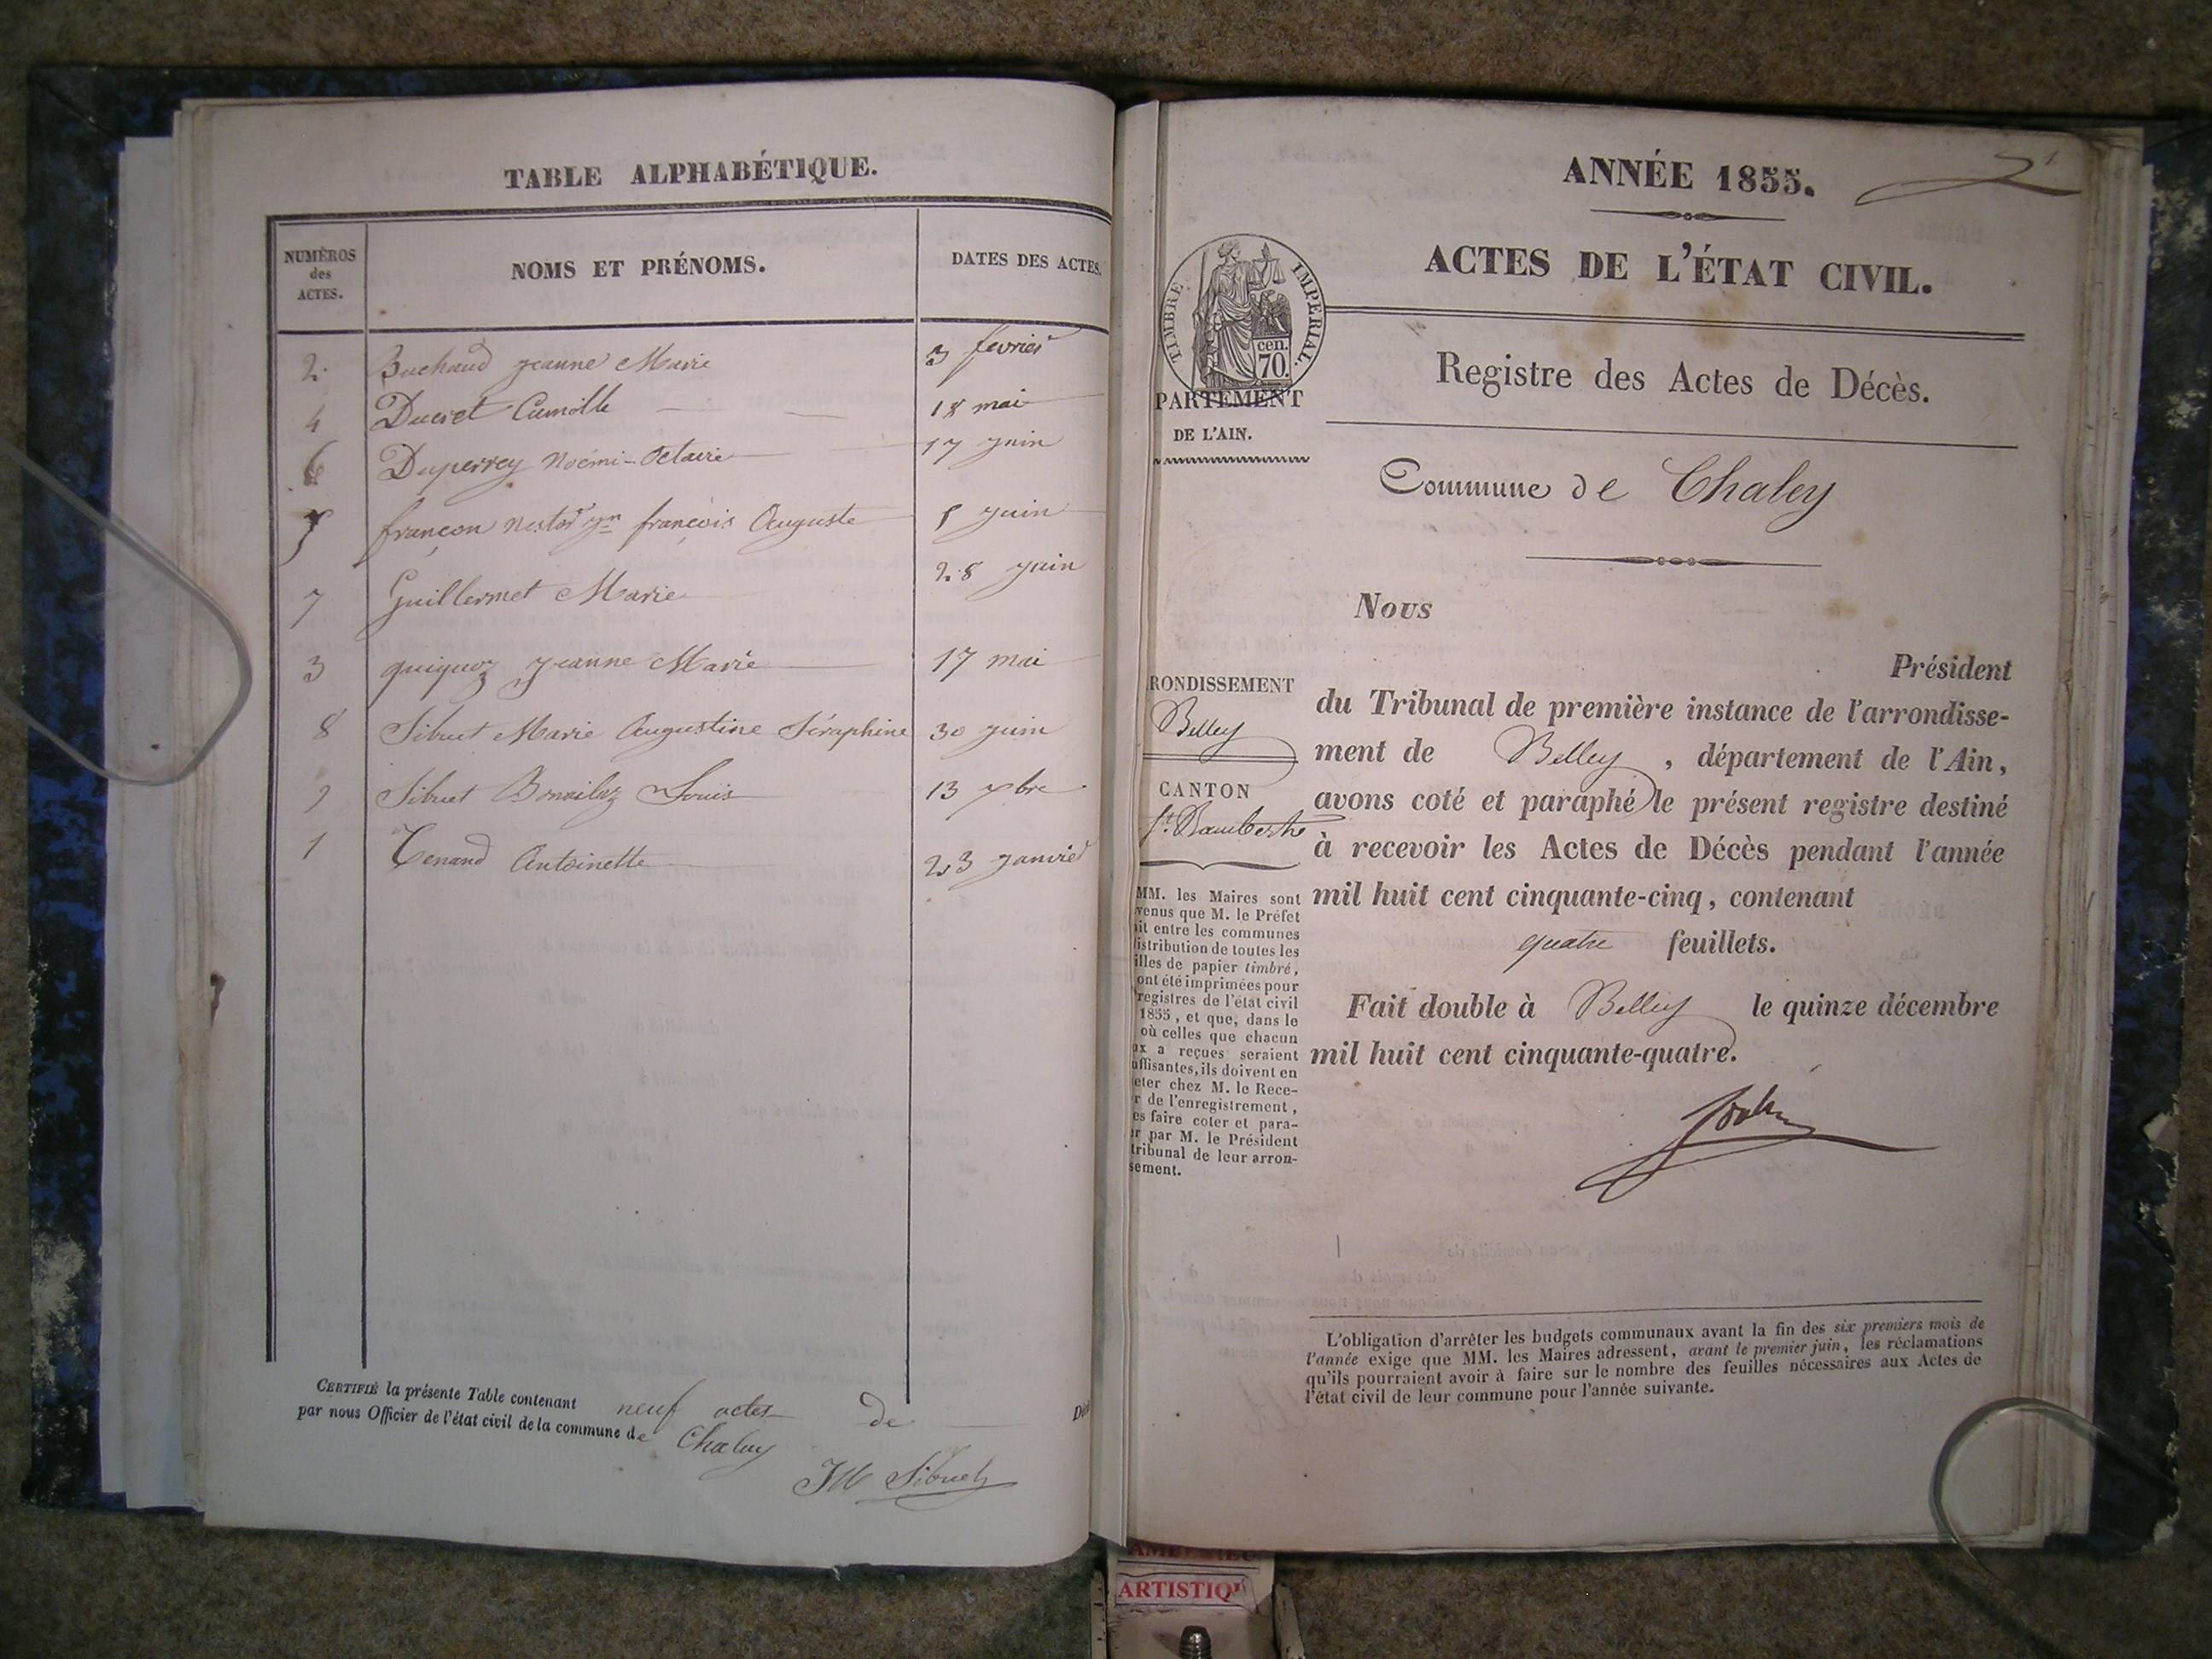 TABLE ALPHABÉTIQUE.
NUMÉROS des ACTES. NOMS ET PRÉNOMS. DATES DES ACTES.
2 Buchaud jeanne Marie 3 fevrier
4 Ducret Camille 18 mai
6 Duperrey Noémi-Octavie 17 juin
5 françon Nestor jn françois Auguste 5 juin
7 Guillermet Marie 28 juin
3 quiquoz jeanne Marie 17 mai
8 Sibuet Marie Augustine Séraphine 30 juin
9 Sibuet Louis 13 7bre
1 Tenand Antoinette 23 janvier
CERTIFIÉ la présente Table contenant neuf actes de
par nous Officier de l'état civil de la commune de Chaley
Sibuet
ANNÉE 1855.
ACTES DE L'ÉTAT CIVIL.
TIMBRE IMPÉRIAL.
cen.
70.
PARTEMENT
DE L'AIN.
Registre des Actes de Décès.
Commune de Chaley
Nous
Président
du Tribunal de première instance de l'arrondisse-
ment de Belley, département de l'Ain,
avons coté et paraphé le présent registre destiné
à recevoir les Actes de Décès pendant l'année
mil huit cent cinquante-cinq, contenant
quatre feuillets.
Fait double à Belley le quinze décembre
mil huit cent cinquante-quatre.
RONDISSEMENT
Belley
CANTON
St. Ramberthe
MM. les Maires sont
venus que M. le Préfet
ait entre les communes
distribution de toutes les
illes de papier timbré,
ont été imprimées pour
registres de l'état civil
1855, et que, dans le
où celles que chacun
ux a reçues seraient
uffisantes, ils doivent en
eter chez M. le Rece-
r de l'enregistrement,
es faire coter et para-
er par M. le Président
tribunal de leur arron-
sement.
L'obligation d'arrêter les budgets communaux avant la fin des six premiers mois de
l'année exige que MM. les Maires adressent, avant le premier juin, les réclamations
qu'ils pourraient avoir à faire sur le nombre des feuilles nécessaires aux Actes de
l'état civil de leur commune pour l'année suivante.
ARTISTIQ